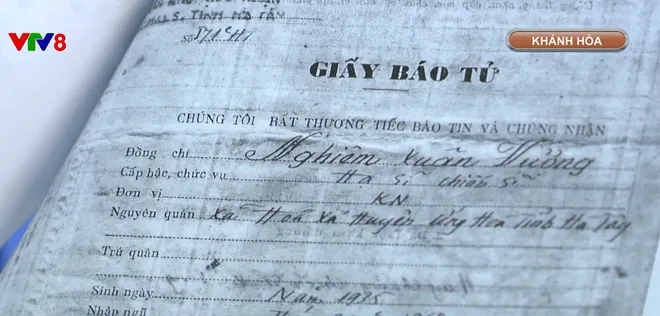 VTV8
KHÁNH HÒA
TỈNH HÀ TÂY
Số 571
GIẤY BÁO TỬ
CHÚNG TÔI RẤT THƯƠNG TIẾC BÁO TIN VÀ CHỨNG NHẬN
Đồng chí Nghiêm Xuân Tưởng
Cấp bậc, chức vụ Hạ sĩ chiến sĩ
Đơn vị KN
Nguyên quán Xã Hoà Xá Huyện Ứng Hoà Tỉnh Hà Tây
Trú quán
Sinh ngày Năm 1935
Nhập ngũ